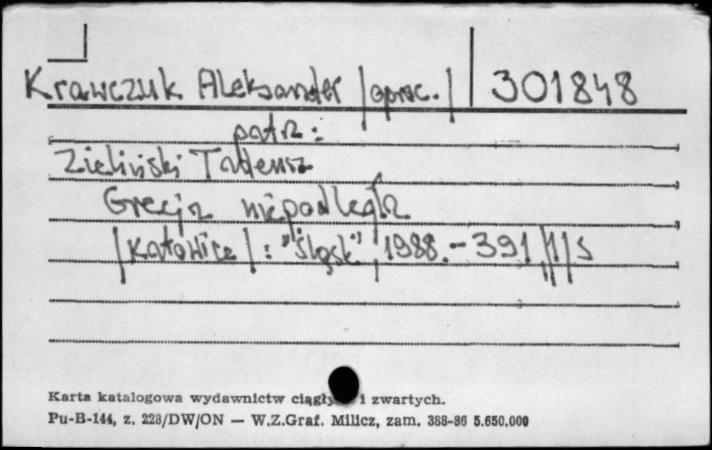 Krawczuk Aleksander /oprac./ 301848
patrz:
Zieliński Tadeusz
Grecja niepodległa
/Katowice/: "Śląsk", 1988. - 391,/1/s
Karta katalogowa wydawnictw ciągły i zwartych.
Pu-B-144, z. 228/DW/ON — W.Z.Graf. Milicz, zam. 388-86 5.650.000